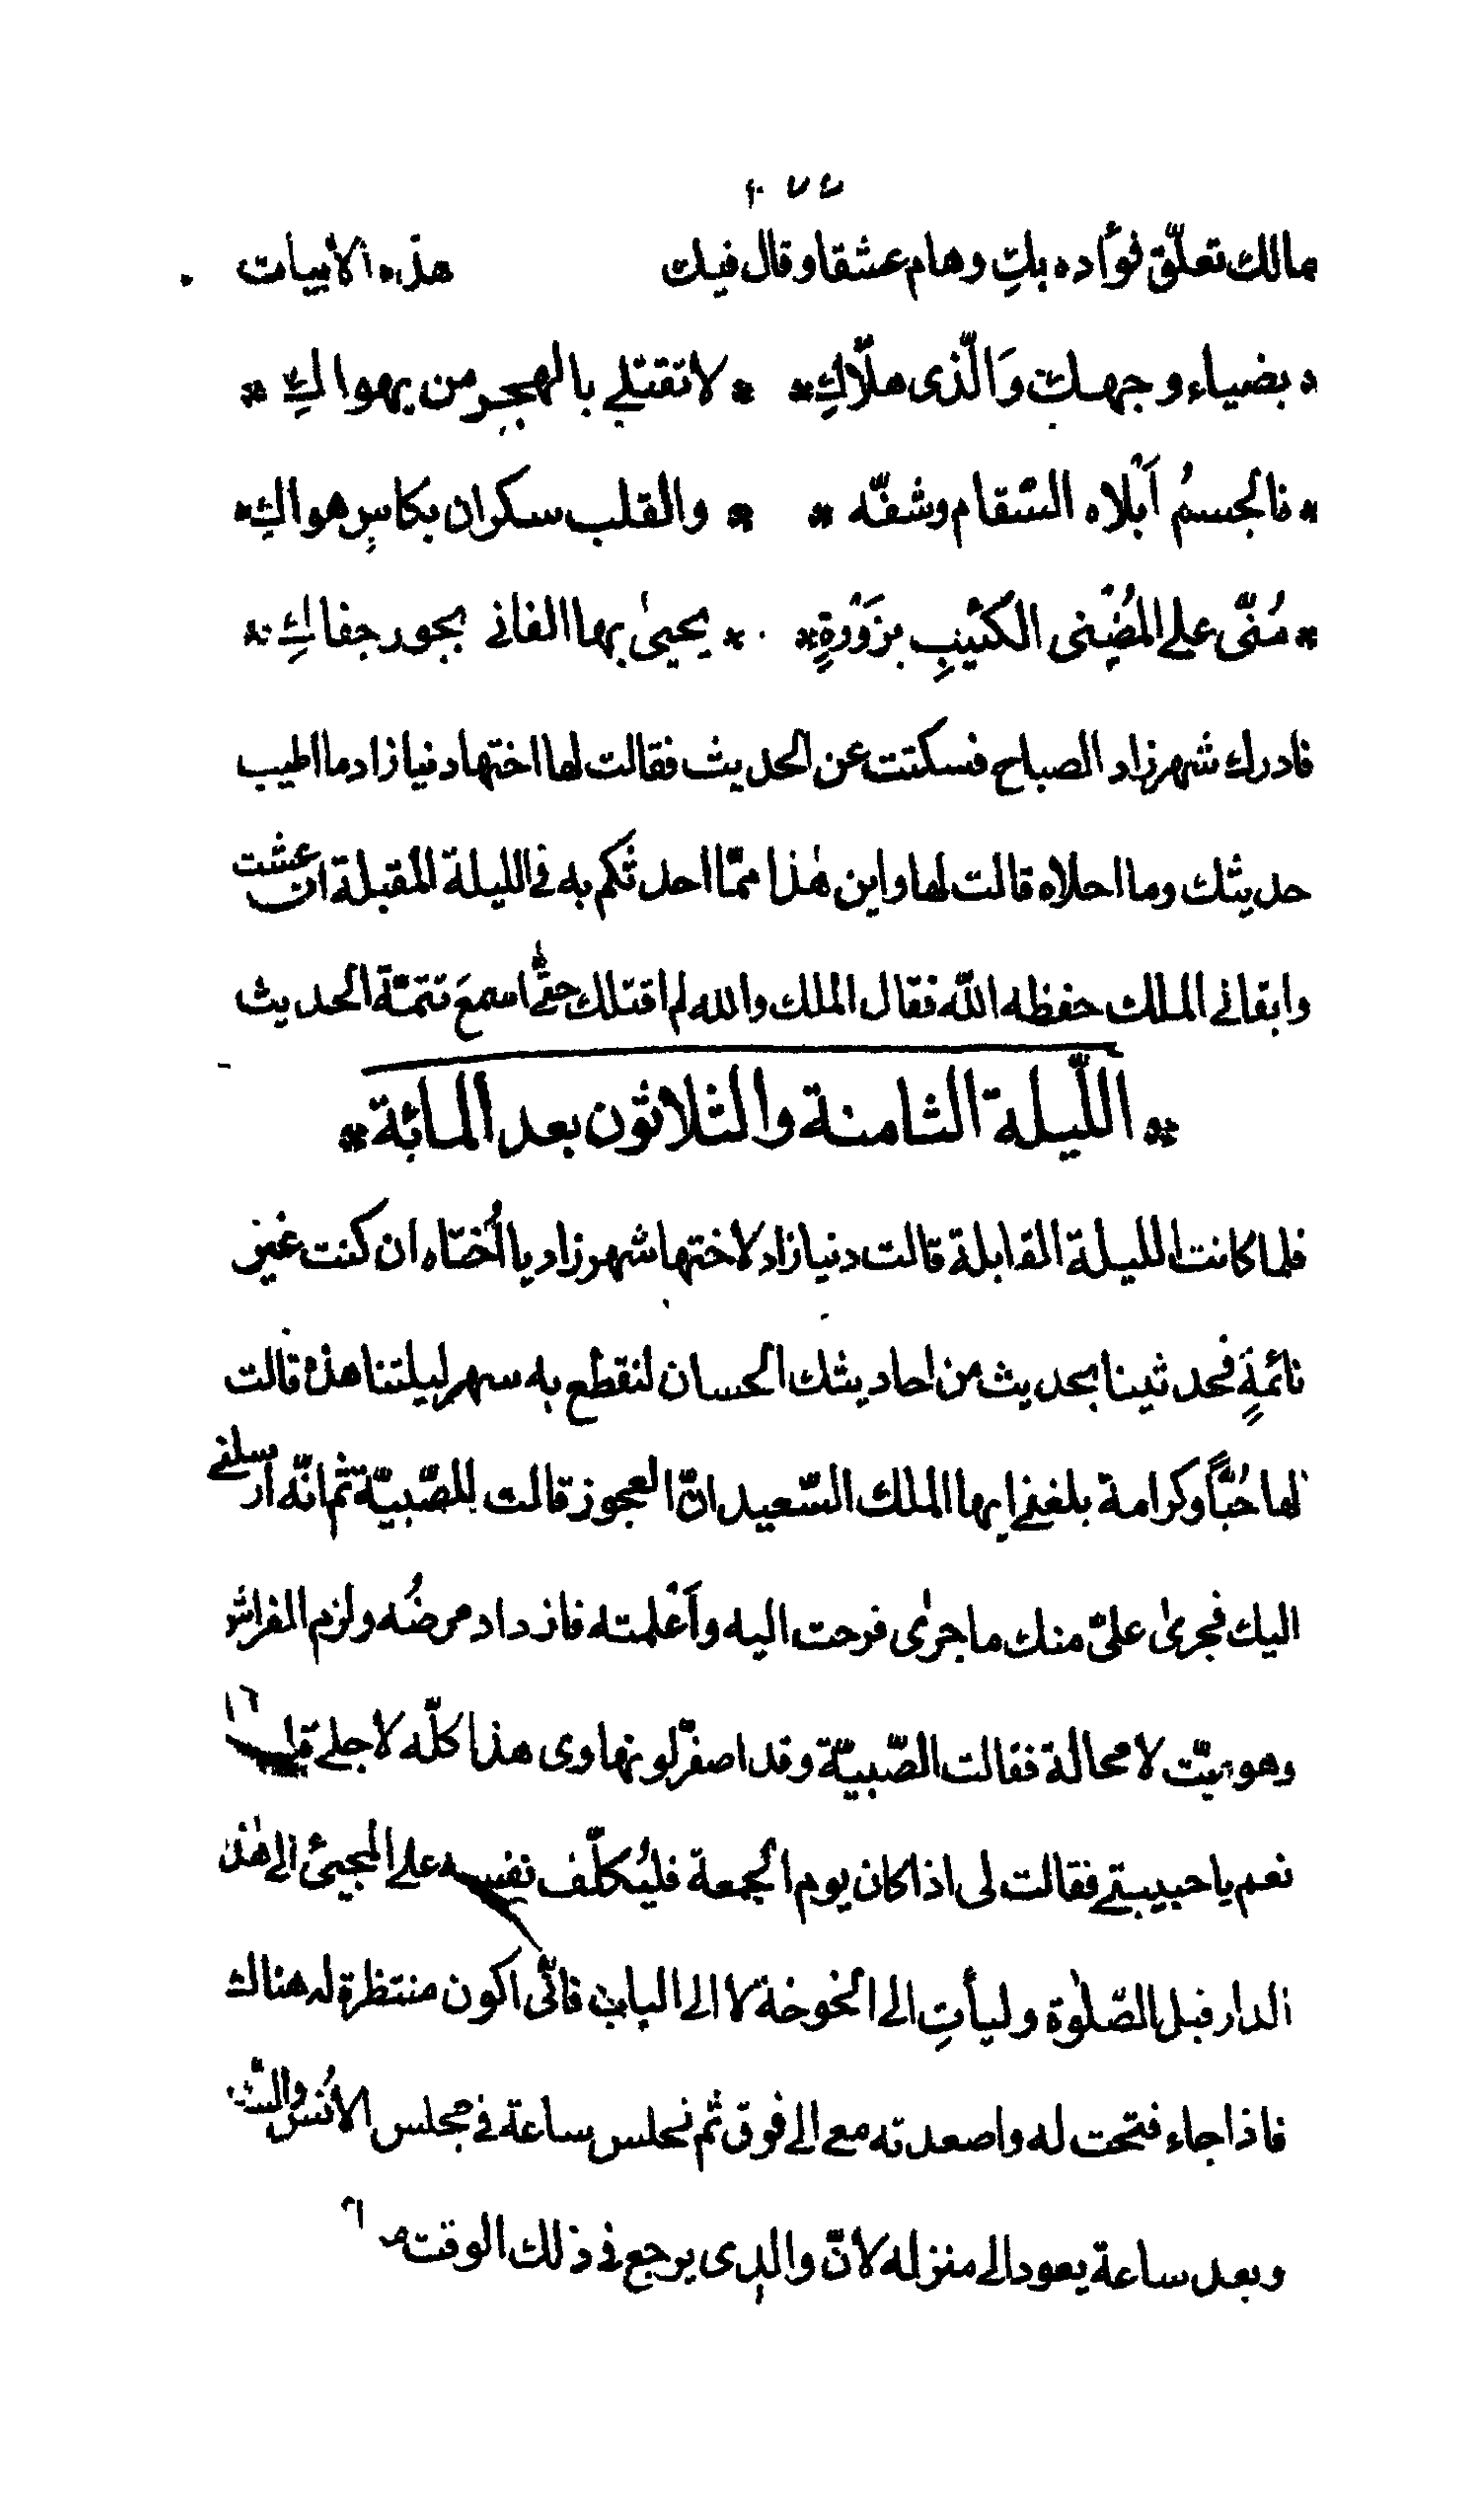 مالك تعلّق فوأده بكِ وهام عشقا وقال فيك هذه الأبيات
* بضياء وجهكِ وَالّذى حلّاكِ * * لا تقتلي بالهجرِ من يهواكِ *
* فالجسمُ اَبْلاه السّقام وشفّه * * والقلب سكران بكاسِ هواكِ *
* مُنّى على المُضْنى الكئيبِ بزَوْرةٍ * * يحيىٰ بها الفانى بجور جفاكِ *
فادرك شهرزاد الصباح فسكتت عن الحديث فقالت لها اختها دنيازاد ما اطيب
حديثك وما احلاه قالت لها واين هٰذا ممّا احدثكم به فى الليلة المقبلة ان عشت
وابقانى الملك حفظه اللّه فقال الملك والله لم اقتلك حتّٰى اسمعَ تتمّة الحديث
* اللّيلة الثامنة والثلاثون بعد المائة *
فلما كانت الليلة القابلة قالت دنيازاد لاختها شهرزاد يا اُختاه ان كنت غير
نائمةٍ فحدثينا بحديث من احاديثك الحسان لنقطع به سهر ليلتنا هذه قالت
لها حُبًّا وكرامة بلغنى ايها الملك السّعيد انّ العجوز قالت للصّبيّة ثم انّه ارسلنى
اليك فجرىٰ علىّ منك ما جرٰى فرحت اليه واَعْلمته فازداد مرضُه ولزم الفراش
وهو ميّت لا محالة فقالت الصّبيّة وقد اصفرّ لونها وى هذا كلّه لاجلى قلت
نعم يا حبيبتى فقالت لى اذا كان يوم الجمعة فليُكلّف نفسه على المجىئ الى هٰذه
الدار قبل الصّلوٰة وليأتِ الى الخوخة لا الى الباب فانّى اكون منتظرة له هناك
فاذا جاء فتحت له واصعدته معى الى فوق ثم نجلس ساعة فى مجلس الاُنس
وبعد ساعة يعود الى منزله لانّ والدِى يرجع فى ذلك الوقت